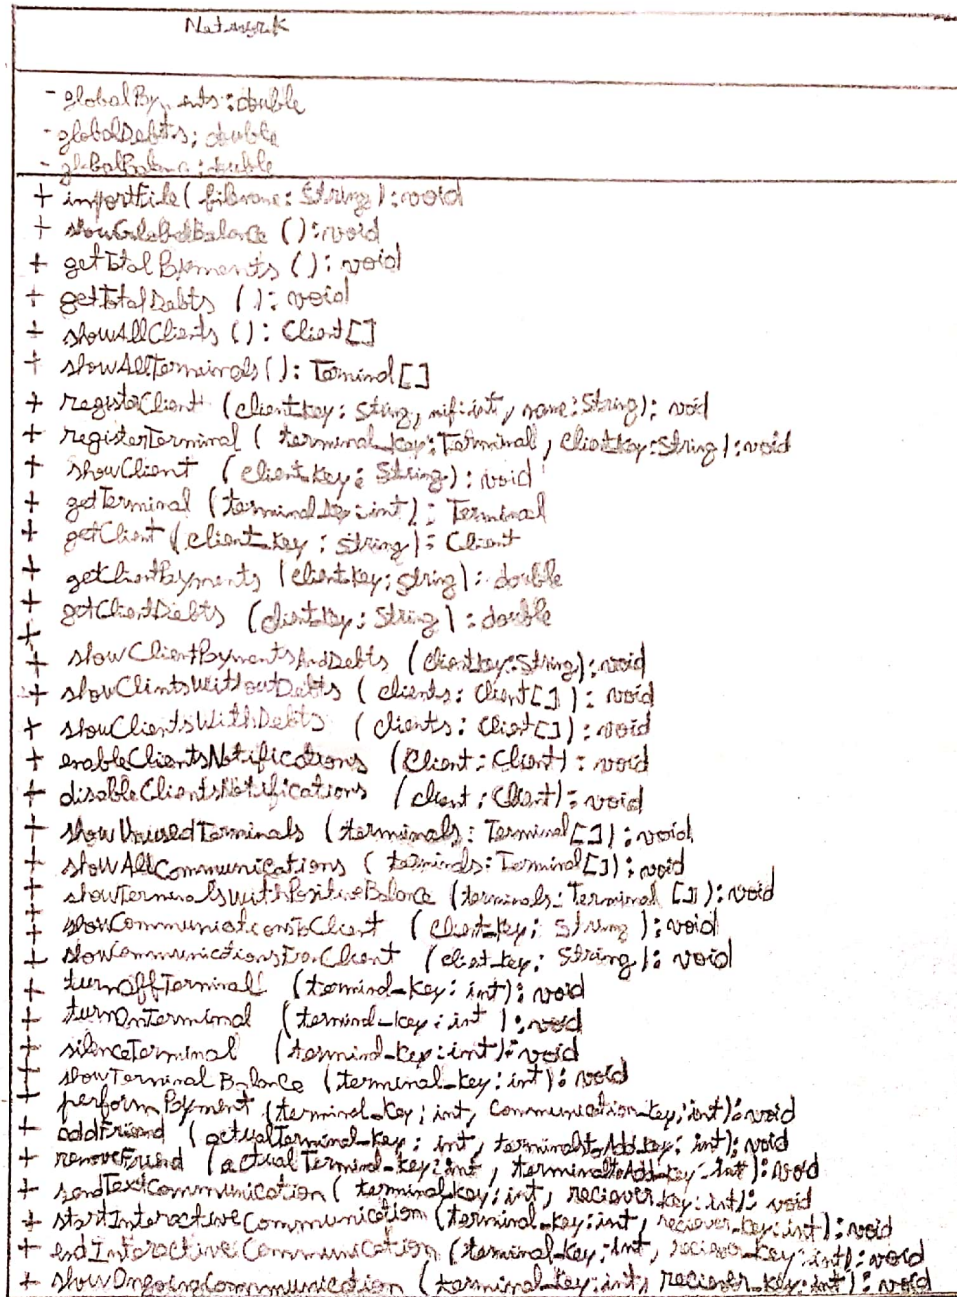 Network
- globalPayments : double
- globalDebts : double
- globalBalance : double
+ importFile ( filename : String ) : void
+ showGlobalBalance () : void
+ getTotalPayments () : void
+ getTotalDebts () : void
+ showAllClients () : Client[]
+ showAllTerminals () : Terminal[]
+ registerClient (client_key : String, nif : int, name : String) : void
+ registerTerminal ( terminal_key : Terminal, client_key : String ) : void
+ showClient (client_key : String) : void
+ getTerminal (terminal_key : int) : Terminal
+ getClient (client_key : String) : Client
+ getClientPayments (client_key : String) : double
+ getClientDebts (client_key : String) : double
+
+ showClientPaymentsAndDebts (client_key : String) : void
+ showClintsWithoutDebts ( clients : Client[] ) : void
+ showClientsWithDebts ( clients : Client[] ) : void
+ enableClientsNotifications (Client : Client) : void
+ disableClientsNotifications (client : Client) : void
+ showUnusedTerminals ( terminals : Terminal[] ) : void
+ showAllCommunications ( terminals : Terminal[] ) : void
+ showTerminalsWithPositiveBalance (terminals : Terminal []) : void
+ showCommunicationstoClient ( client_key : String ) : void
+ showCommunicationsFromClient (client_key : String) : void
+ turnOffTerminal (terminal_key : int) : void
+ turnOnTerminal (terminal_key : int ) : void
+ silenceTerminal (terminal_key : int) : void
+ showTerminalBalance (terminal_key : int) : void
+ performPayment (terminal_key : int, communication_key : int) : void
+ addFriend (actualTerminal_key : int, terminaltoAdd_key : int) : void
+ removeFriend (actualTerminal_key : int, terminaltoAdd_key : int) : void
+ sendTextCommunication ( terminal_key : int, reciever_key : int) : void
+ startInteractiveCommunication (terminal_key : int, reciever_key : int) : void
+ endInteractiveCommunication (terminal_key : int, reciever_key : int) : void
+ showOngoingCommmunication (terminal_key : int, reciever_key : int) : void